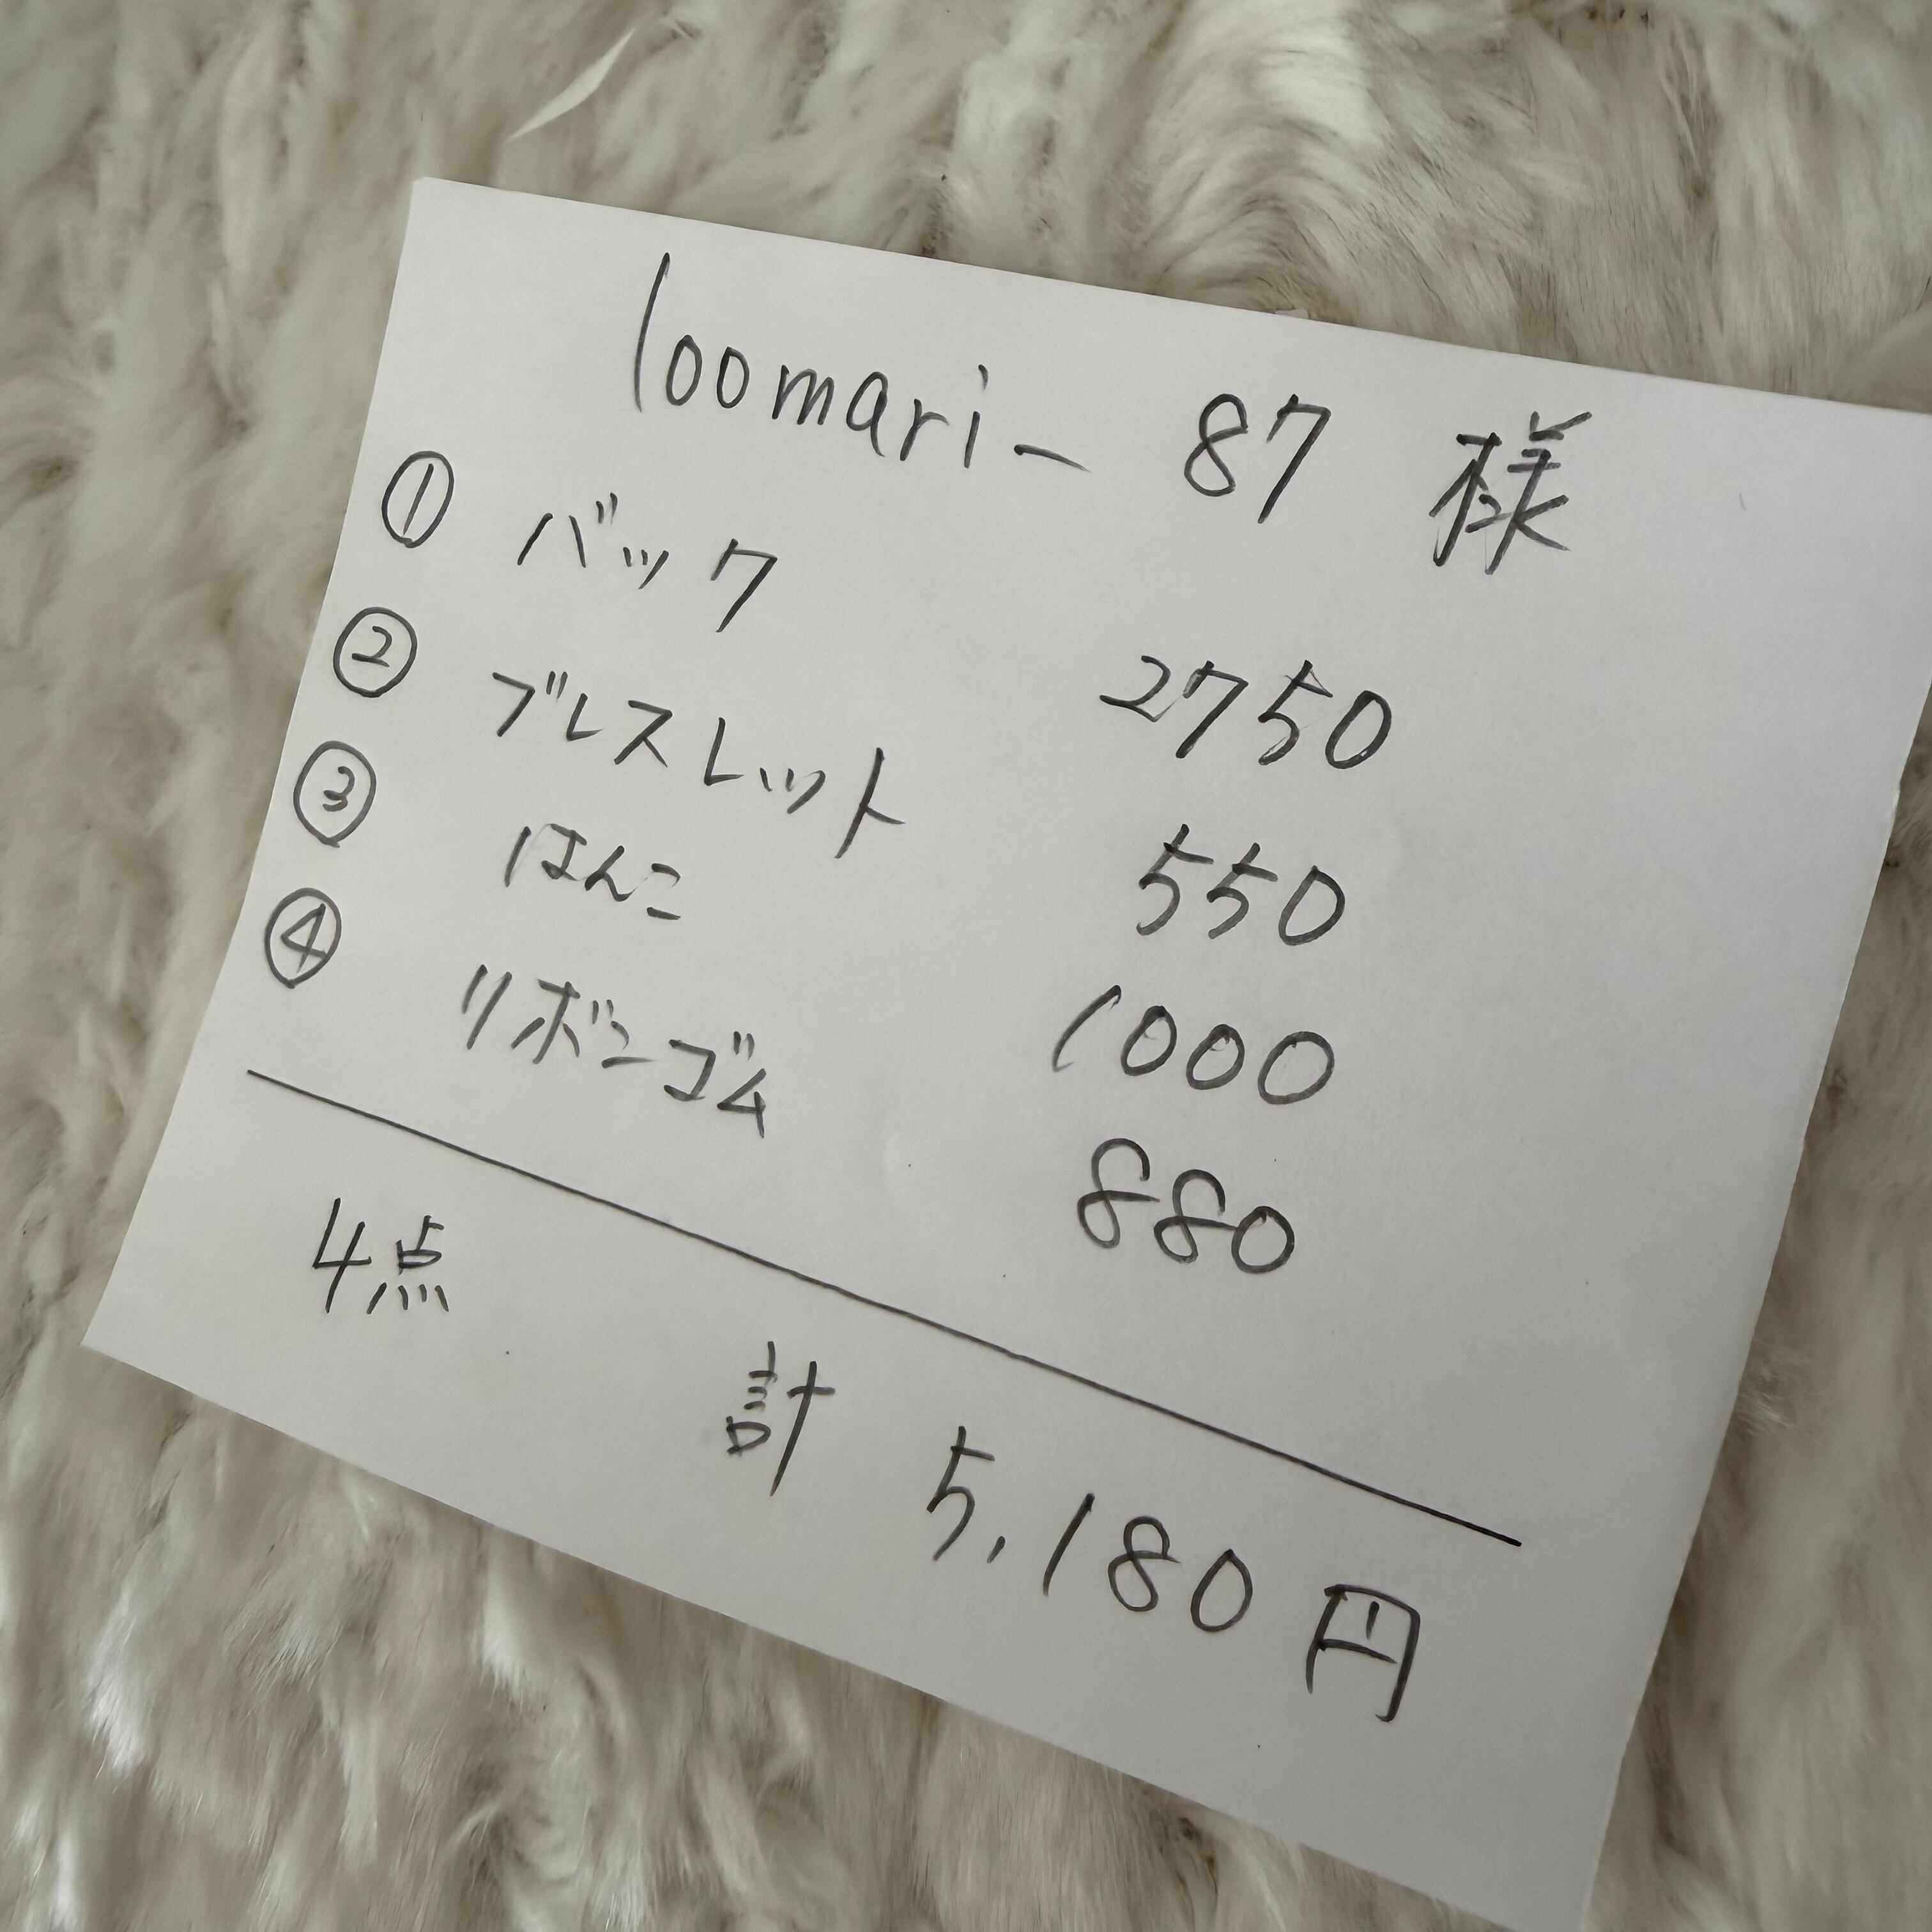 loomari_ 87 様
① バック 2750
② ブレスレット 550
③ はんこ 1000
④ リボンゴム 880
4点 計 5,180円